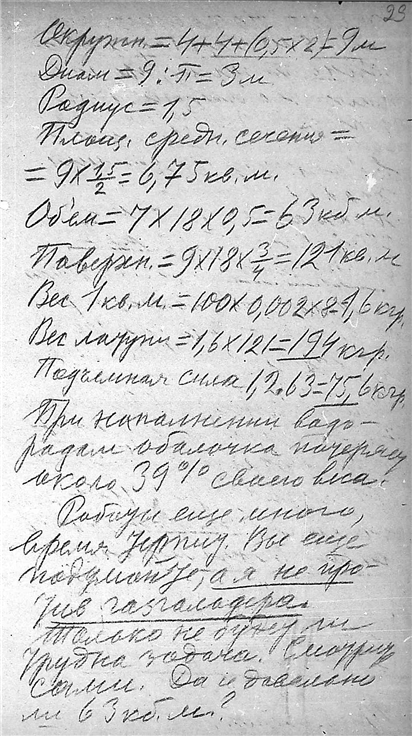 29
Окружн. = 4+4+(0,5×2)=9 м
Диам = 9 : π = 3 м
Радиус = 1,5
Площ. средн. сечения =
= 9 × 1,5/2 = 6,75 кв. м.
Об'ем = 7 × 18 × 0,5 = 63 кб м.
Поверхн. = 9×18× 3/4 = 121 кв. м
Вес 1 кв. м. = 100×0,002×8=1,6 кгр.
Вес латуни = 1,6×121=194 кгр.
Подъемная сила 1,2.63=75,6 кгр.
При наполнении водо-
родом оболочка потеряет
около 39% своего веса.
Работы еще много,
время терпит. Вы еще
подумайте, а я не про-
тив газгольдера.
Только не будет ли
трудна задача. Смотрите
сами. Да и довольно
ли 63 кб. м.?